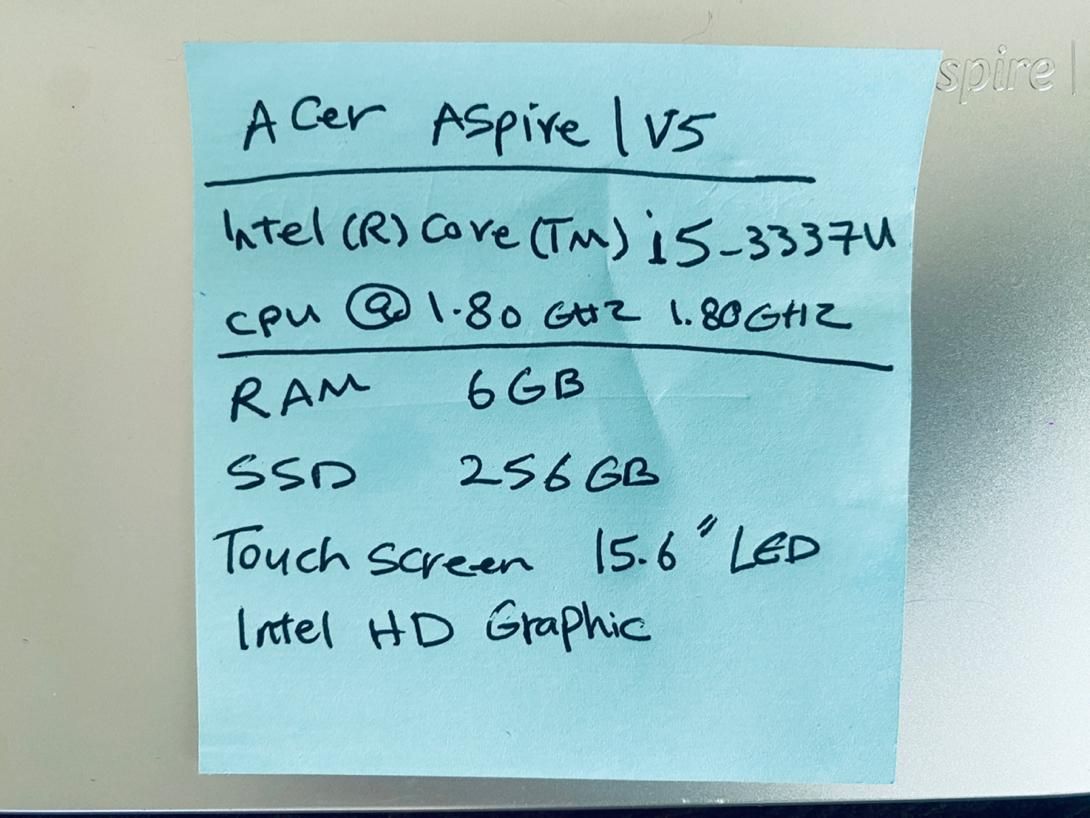 Acer Aspire | V5
spire |
Intel (R) Core (TM) i5-3337U
CPU @ 1.80 GHZ 1.80GHZ
RAM 6GB
SSD 256GB
Touch screen 15.6" LED
Intel HD Graphic